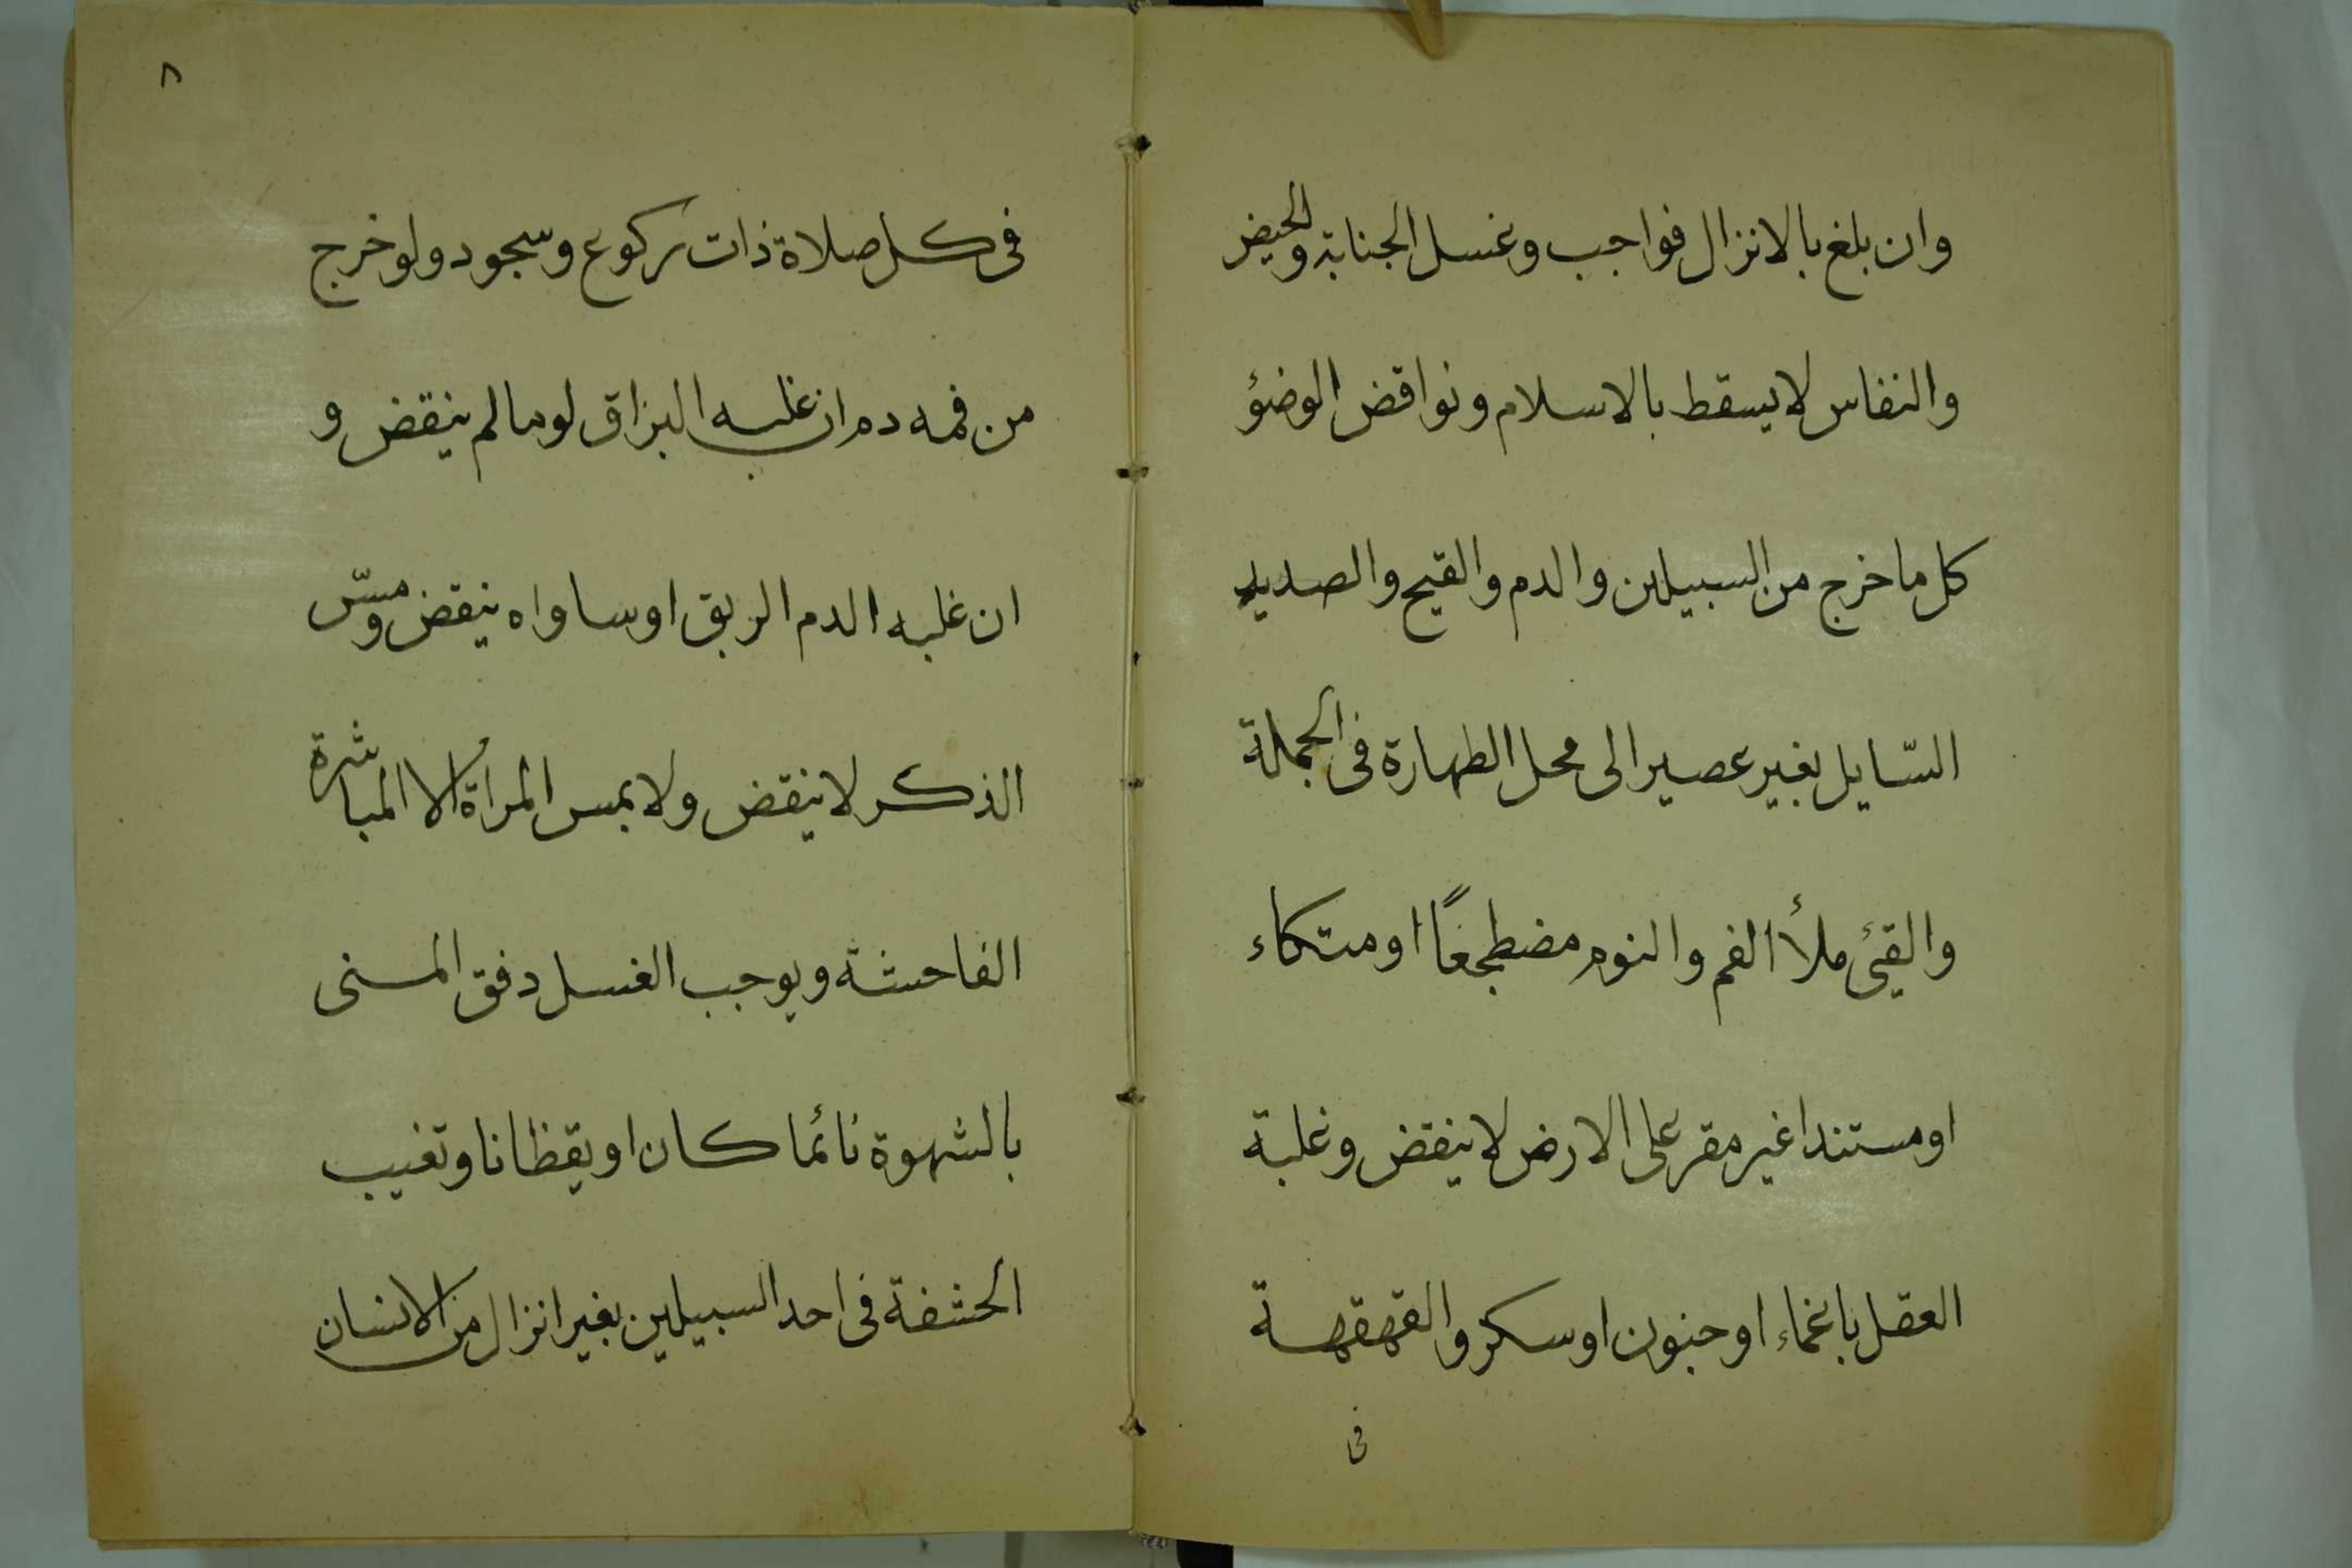 وان بلغ بالانزال فواجب وغسل الجنابة والحيض
والنفاس لا يسقط بالاسلام ونواقض الوضؤ
كل ما خرج من السبيلين والدم والقيح والصديد
السّايل بغير عصير الى محل الطهارة فى الجملة
والقئ ملأ الفم والنوم مضطجعًا او متكاء
او مستندا غير مقر على الارض لا ينقض وغلبة
العقل باغماء او جنون او سكر والقهقهة
فى
٨
فى كل صلاة ذات ركوع وسجود ولو خرج
من فمه دم ان غلبه البزاق لوما لم ينقض و
ان غلبه الدم الريق او ساواه ينقض ومسّ
الذكر لا ينقض ولا بمس المراة الا المباشرة
الفاحشة ويوجب الغسل دفق المنى
بالشهوة نائما كان او يقظانا وتغيب
الحشفة فى احد السبيلين بغير انزال من الانسان